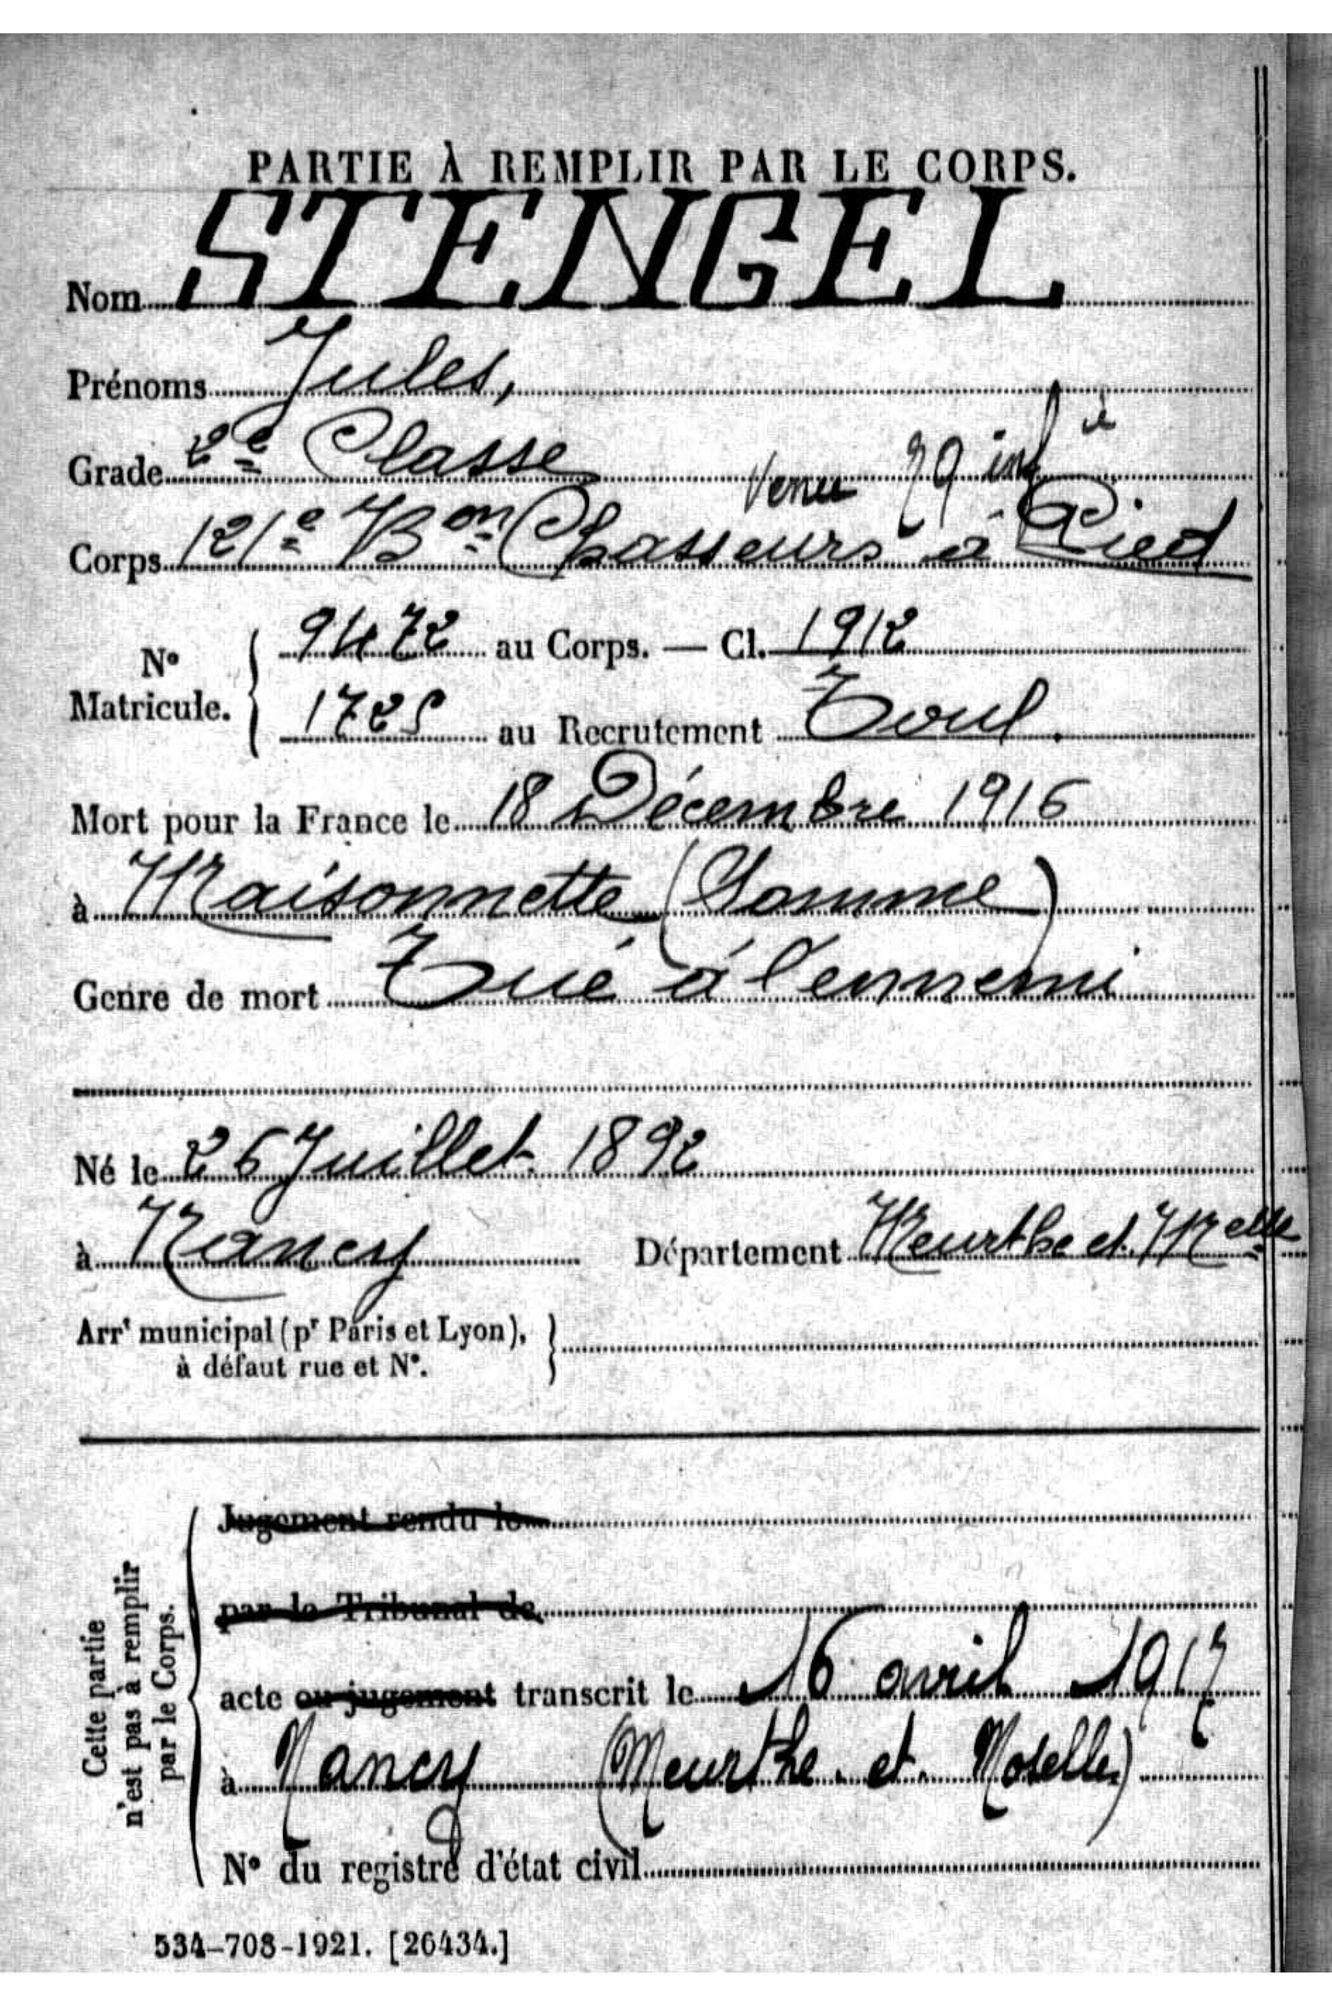 PARTIE À REMPLIR PAR LE CORPS.
Nom STENGEL
Prénoms Jules,
Grade 2e Classe
Venu 79 infie
Corps 121e Bon Chasseurs à Pied
No Matricule. 9472 au Corps. — Cl. 1912
1725 au Recrutement Toul.
Mort pour la France le 18 Décembre 1916
à Maisonnette (Somme)
Genre de mort Tué à l'ennemi
Né le 26 Juillet 1892
à Nancy Département Meurthe et Melle
Arrt municipal (pr Paris et Lyon),
à défaut rue et No.
Cette partie
n'est pas à remplir
par le Corps.
Jugement rendu le
par le Tribunal de
acte ou jugement transcrit le 16 avril 1917
à Nancy (Meurthe et Moselle)
No du registre d'état civil
534-708-1921. [26434.]